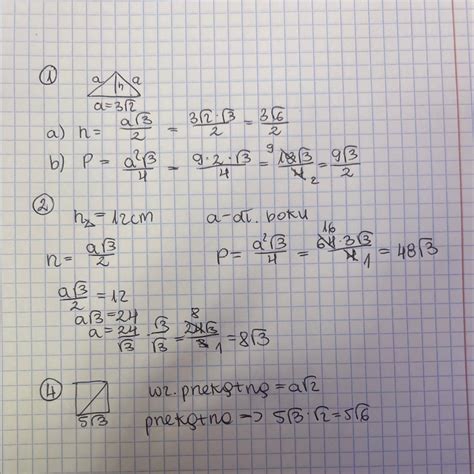 ①
a h a
a=3√2
a) h = a√3/2 = 3√2·√3/2 = 3√6/2
b) P = a²√3/4 = 9·2·√3/4 = 9 18√3/4 2 = 9√3/2
②
h△=12cm a-dł. boku
h = a√3/2 P= a²√3/4 = 16 64·3√3/4 1 = 48√3
a√3/2 =12
a√3=24
a= 24/√3 · √3/√3 = 8 24√3/3 1 =8√3
④
5√3
wz. przekątną = a√2
przekątna -> 5√3·√2=5√6